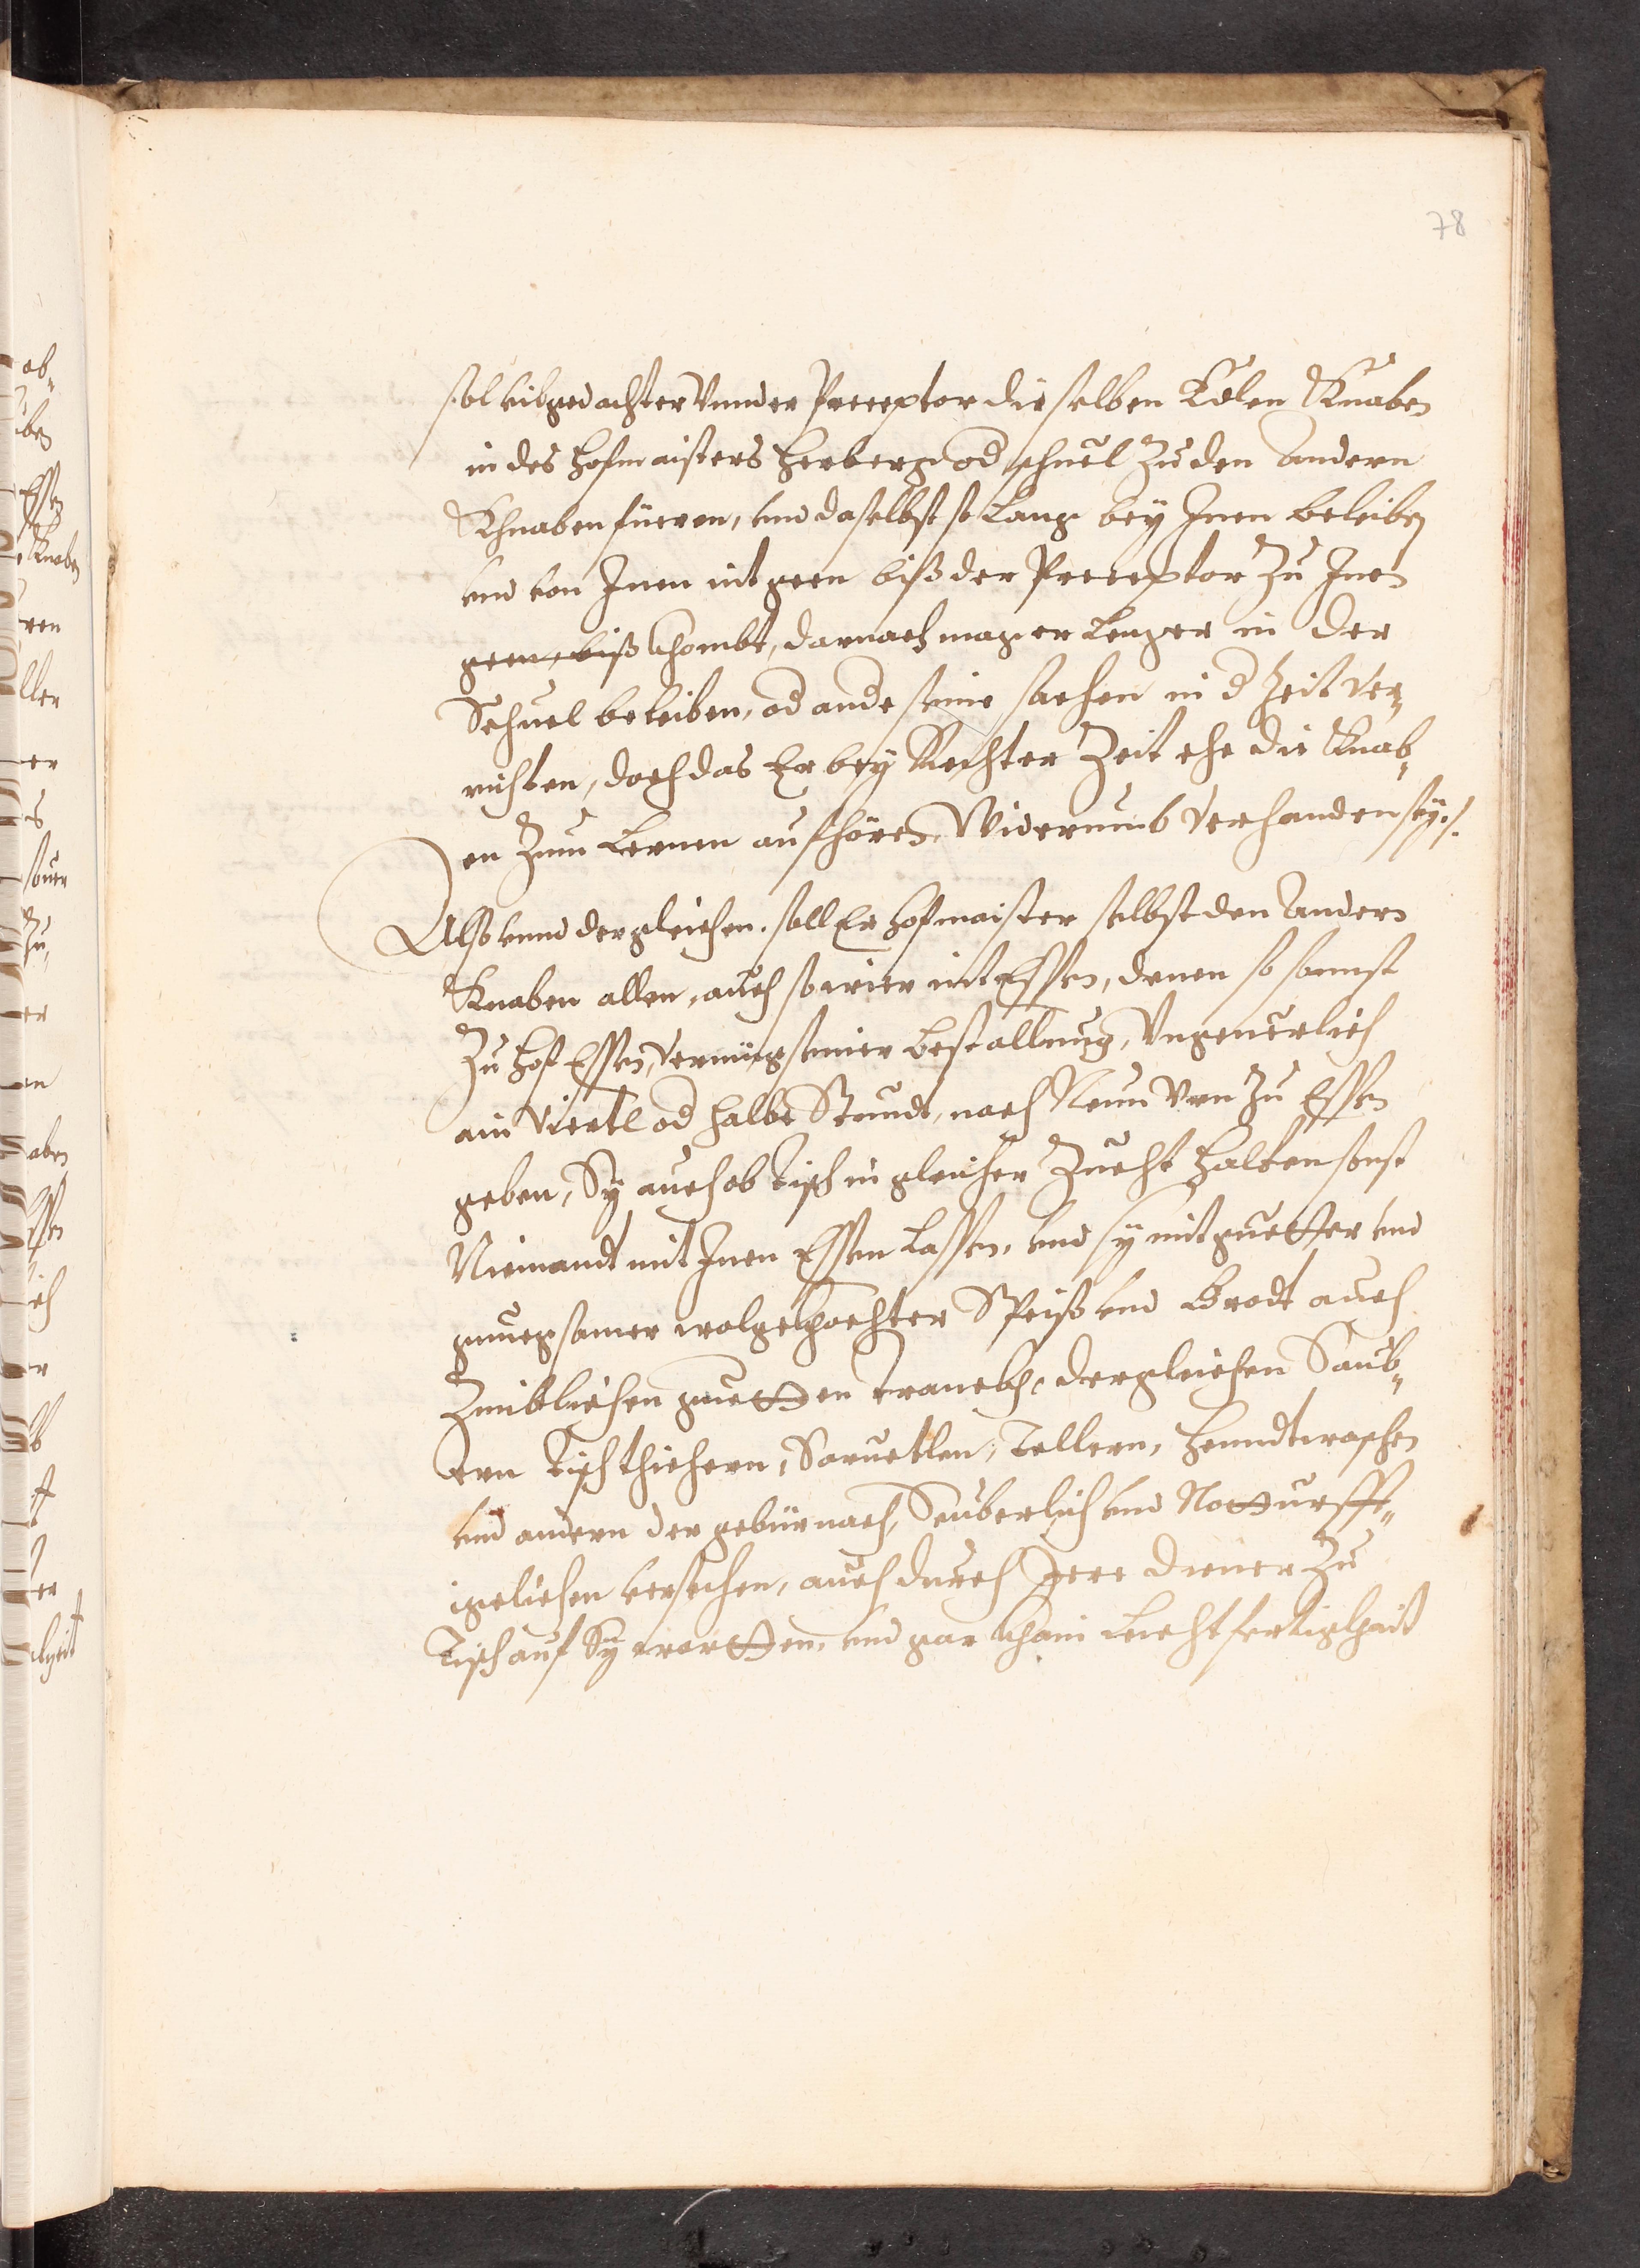 78
sol vilgedachter Vnnder Preceptor die selben Edlen Knaben
in des Hofmaisters Herberg od schuel Zu den Andern
Khnaben füeren, vnd daselbst so Lang bey Inen beleiben
vnd von Inen nit geen biß der Preceptor Zu Inen
geen, biß khombt, darnach mag er Lenger in der
Schuel beleiben, od ande seine sachen in d Zeit ver„
richten, doch das Er bey Rechter Zeit ehe die Knab„
en Zum Lernen aufhören, Widerumb verhanden sey./.
Also vnnd dergleichen. soll Er Hofmaister selbst den Andern
Knaben allen, auch so wier nit Essen, denen so sonnst
Zu Hof Essen, vermüg seiner bestallung, Vngeuerlich
ain Viertl od halbe Stundt, nach Neun Vrn Zu Essen
geben, Sy auch ob tisch in gleicher Zucht halten sonst
Niemandt mit Inen Essen Lassen, vnd sy mit guetter vnd
gnuegsamer wolgekhochter Speiß vnd Brodt auch
Zimblichen guetten tranckh, dergleichen Saub„
ern tischthiehern, Saruetlen, Tellern, Henndtwaschen
vnd andern der gebür nach, Seuberlich vnd Notturfft„
igclichen versehen, auch durch Jere diener Zu
Tisch auf Sy wartten, vnd gar khain Leichtfertigkhait
ob„
Essen
Knaben
ren
ller
er
Zu„
er
en
aben
ich
er